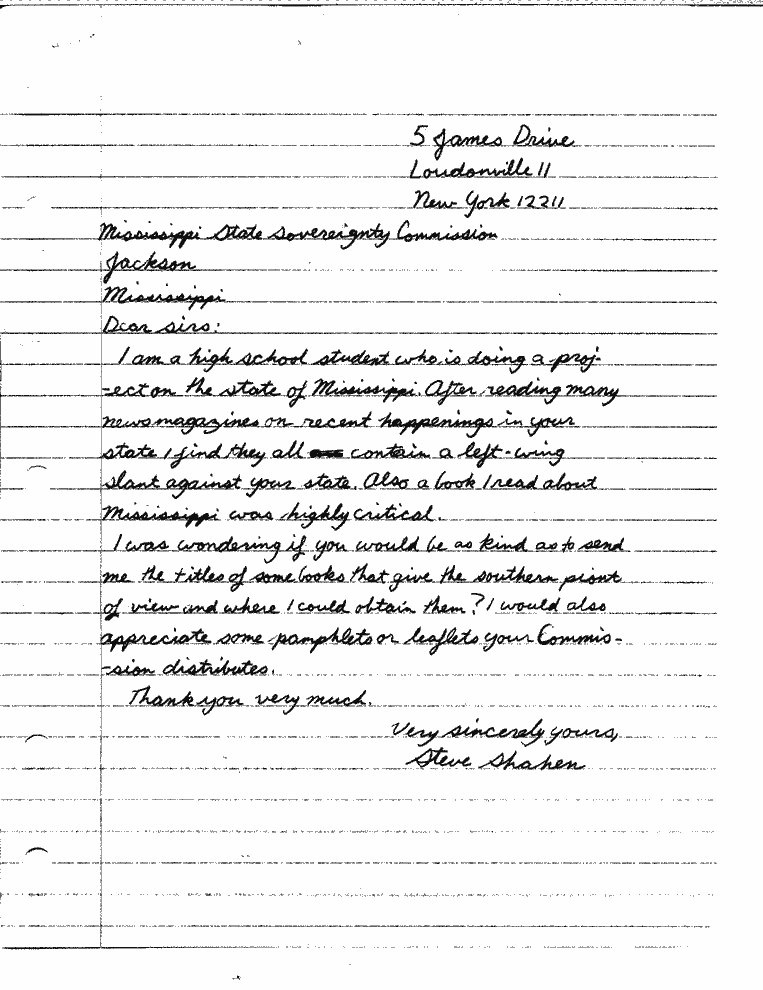 5 James Drive
Loudonville 11
New York 12211
Mississippi State Sovereignty Commission
Jackson
Mississippi
Dear sirs:
I am a high school student who is doing a proj-
-ect on the state of Mississippi. After reading many
newsmagazines on recent happenings in your
state I find they all contain a left-wing
slant against your state. Also a book I read about
Mississippi was highly critical.
I was wondering if you would be as kind as to send
me the titles of some books that give the southern piont
of view and where I could obtain them? I would also
appreciate some pamphlets or leaflets your Commis-
-sion distributes.
Thank you very much.
Very sincerely yours,
Steve Shahen